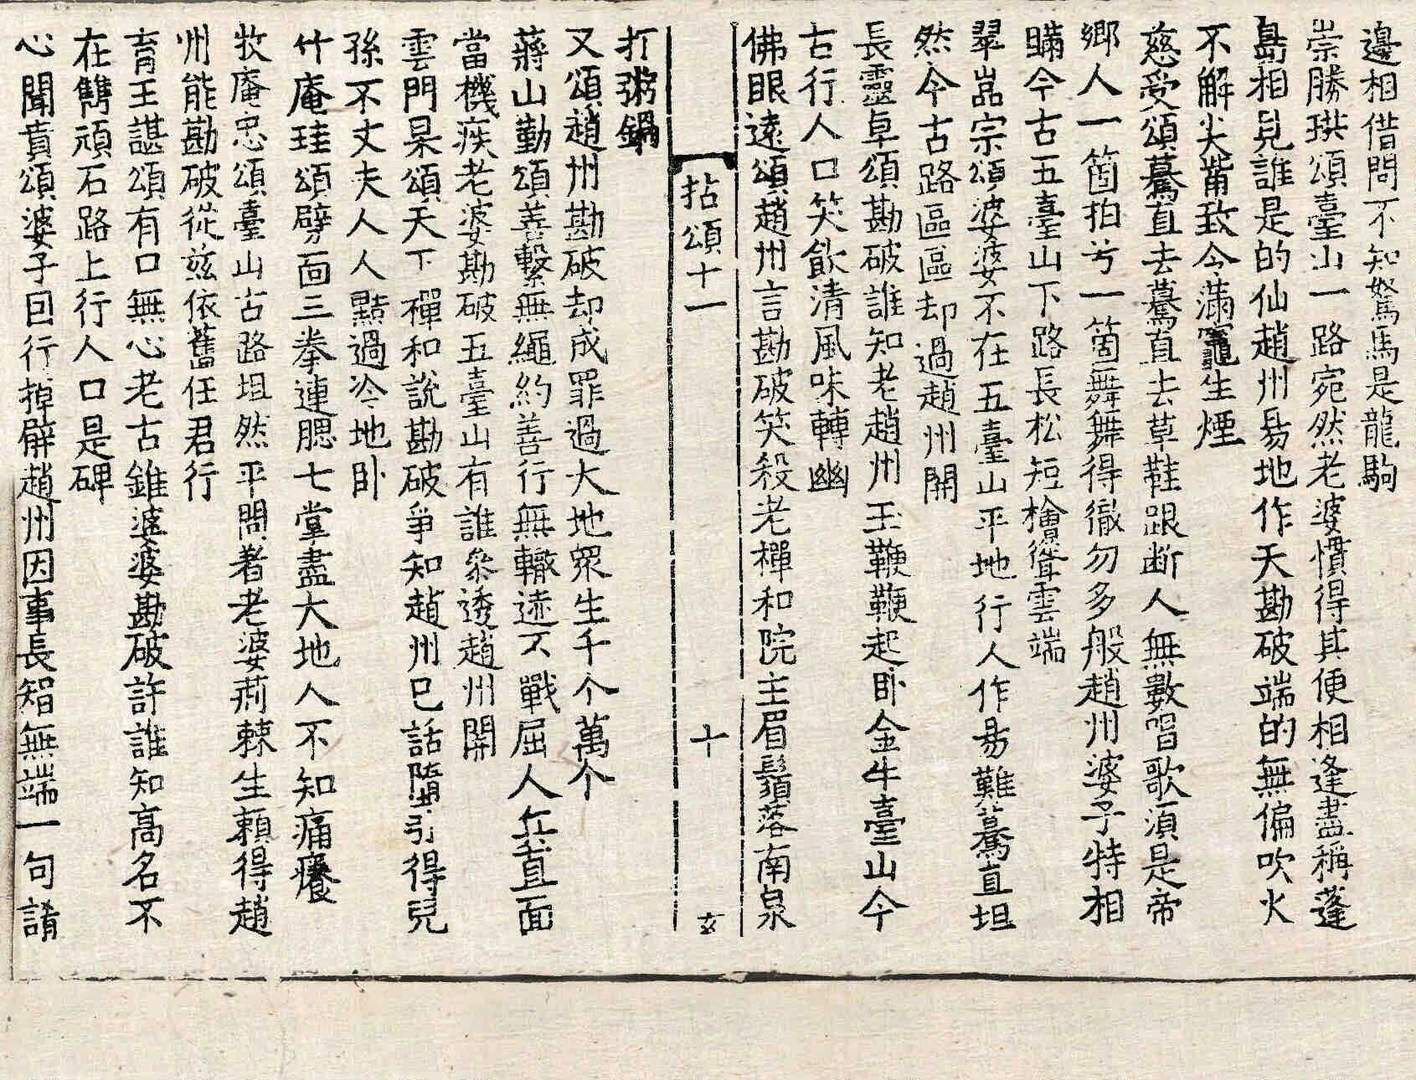 邊相借問不知駑馬是龍駒
崇勝珙頌臺山一路宛然老婆慣得其便相逢盡稱蓬
島相見誰是的仙趙州易地作天勘破端的無偏吹火
不解尖觜致今滿竈生煙
慈受頌驀直去驀直去草鞋跟断人無數唱歌湏是帝
鄉人一箇拍兮一箇舞舞得徹勿多般趙州婆子特相
瞞今古五臺山下路長松短檜聳雲端
翠嵓宗頌婆婆不在五臺山平地行人作易難驀直坦
然今古路區區却過趙州關
長靈卓頌勘破誰知老趙州玉鞭鞭起卧金牛臺山今
古行人口笑飲清風味轉幽
佛眼遠頌趙州言勘破笑殺老禪和院主眉鬚落南泉
拈頌十一 十 玄
打粥鍋
又頌趙州勘破却成罪過大地衆生千个萬个
蔣山勤頌善繫無繩約善行無轍迹不戰屈人兵直面
當機疾老婆勘破五臺山有誰叅透趙州關
雲門杲頌天下禪和說勘破爭知趙州已話墮引得兒
孫不丈夫人人點過冷地卧
什庵珪頌劈面三拳連腮七掌盡大地人不知痛癢
牧庵忠頌臺山古路坦然平問着老婆荊棘生賴得趙
州能勘破從玆依舊任君行
育王諶頌有口無心老古錐婆婆勘破許誰知高名不
在鐫頑石路上行人口是碑
心聞賁頌婆子回行掉臂趙州因事長智無端一句誵